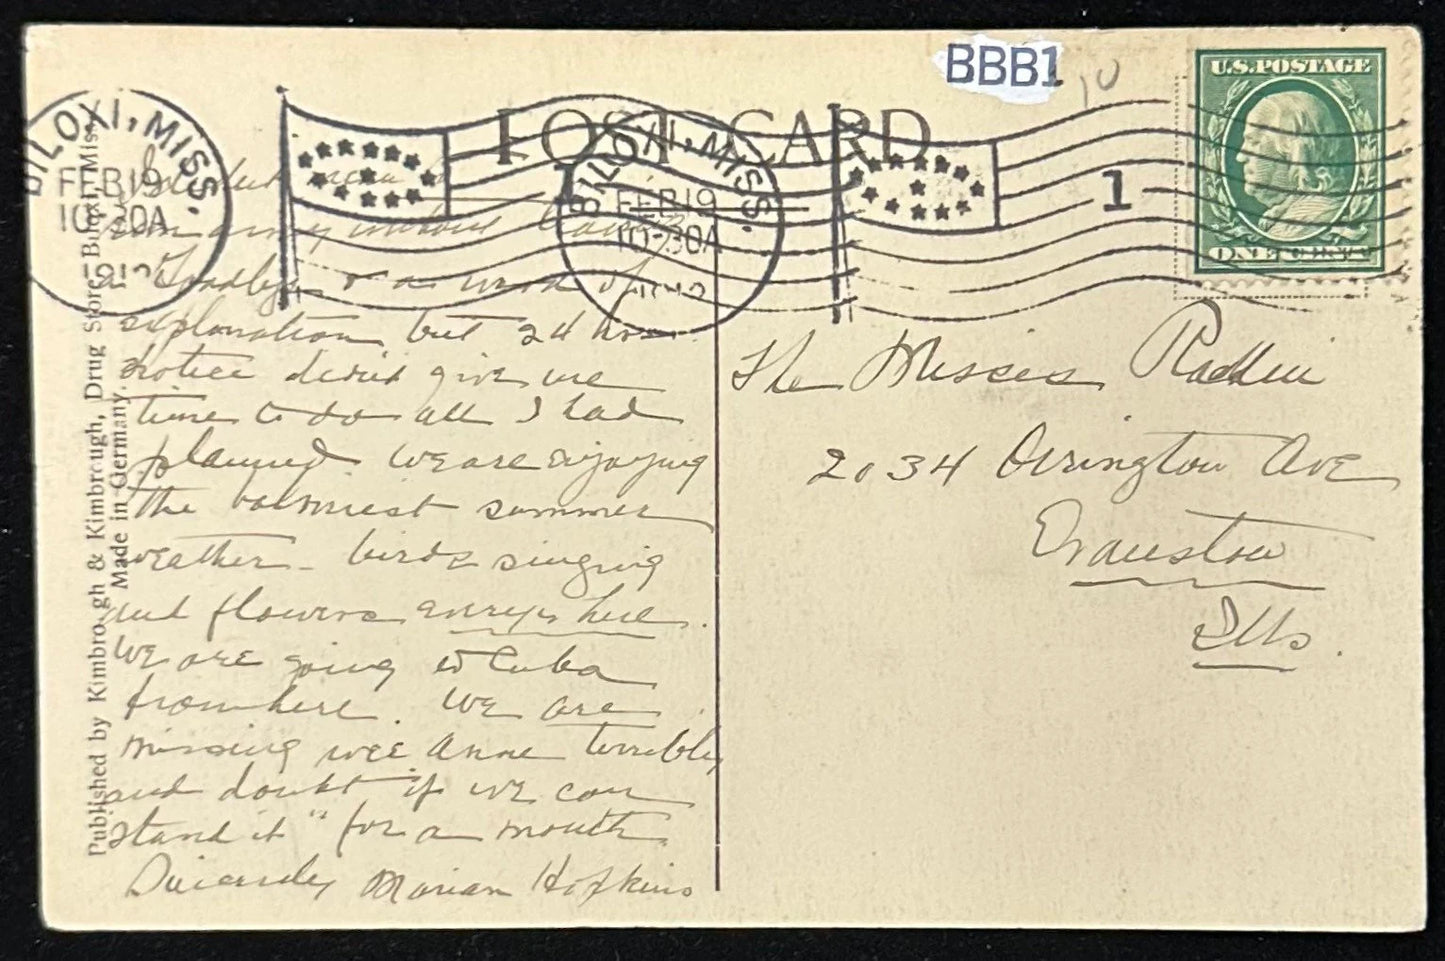 BBB1
10
U.S. POSTAGE
ONE CENT
POST CARD
BILOXI, MISS.
FEB 19
10-30A
1
BILOXI, MISS.
FEB 19
10-30A
1
run away without
a "Goodbye" & a word of
explanation but 24 hrs
notice didn't give me
time to do all I had
planned. We are enjoying
the balmiest summer
weather - birds singing
and flowers everywhere.
We are going to Cuba
from here. We are
missing wee Anne terribly
and doubt if we can
"stand it" for a month.
Sincerely Marian Hopkins
The Misses
2034 Orrington Ave
Evanston
Ills.
Published by Kimbrough & Kimbrough, Drug Store, Biloxi, Miss.
Made in Germany.